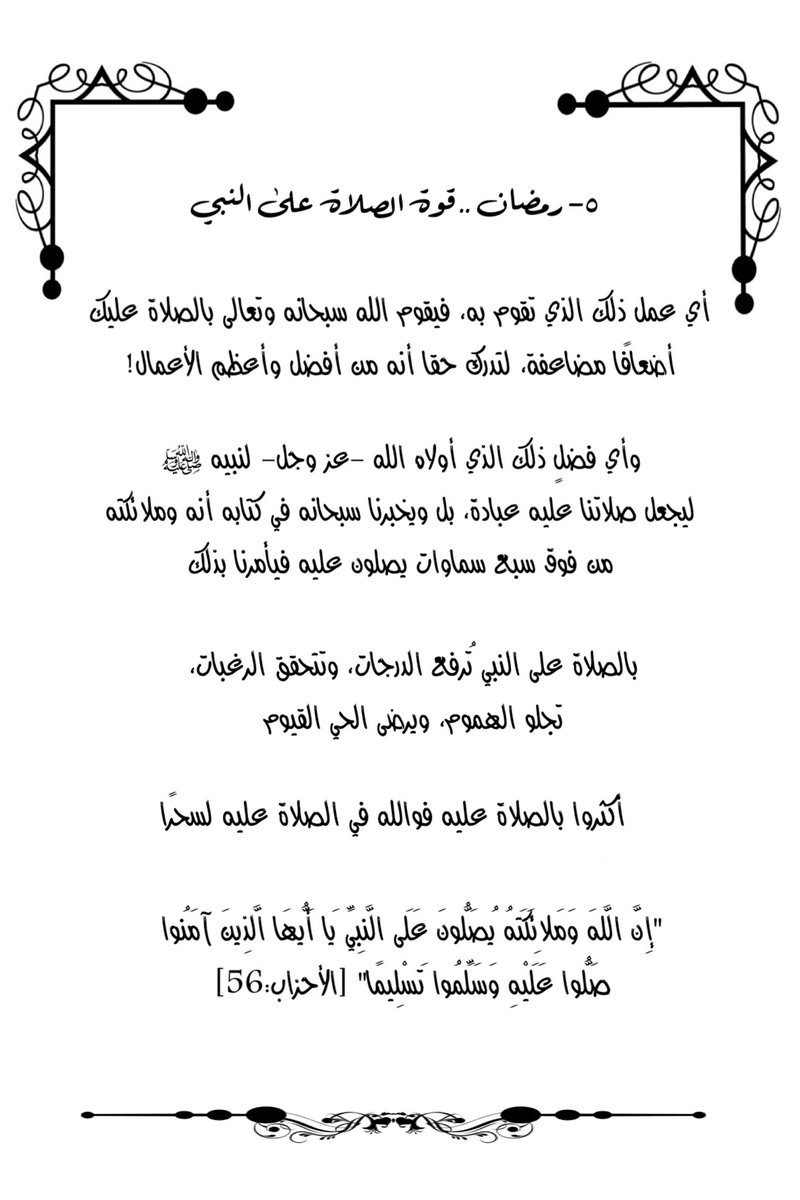 ٥- رمضان .. قوة الصلاة على النبي
أي عمل ذلك الذي تقوم به، فيقوم الله سبحانه وتعالى بالصلاة عليك
أضعافًا مضاعفة، لتدرك حقا أنه من أفضل وأعظم الأعمال!
وأي فضلٍ ذلك الذي أولاه الله -عز وجل- لنبيه ﷺ
ليجعل صلاتنا عليه عبادة، بل ويخبرنا سبحانه في كتابه أنه وملائكته
من فوق سبع سماوات يصلون عليه فيأمرنا بذلك
بالصلاة على النبي تُرفع الدرجات، وتتحقق الرغبات،
تجلو الهموم، ويرضى الحي القيوم
أكثروا بالصلاة عليه فوالله في الصلاة عليه لسحرًا
"إِنَّ اللَّهَ وَمَلَائِكَتَهُ يُصَلُّونَ عَلَى النَّبِيِّ يَا أَيُّهَا الَّذِينَ آمَنُوا
صَلُّوا عَلَيْهِ وَسَلِّمُوا تَسْلِيمًا" [الأحزاب:56]